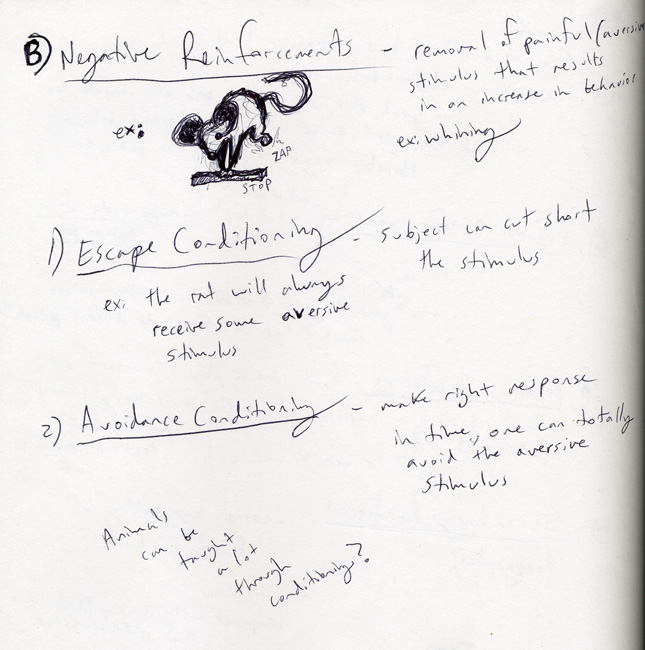 B) Negative Reinforcements - removal of painful (aversive
stimulus that results
in an increase in behavior
ex: whining
ex:
ZAP
STOP
1) Escape Conditioning - subject can cut short
the stimulus
ex: the rat will always
receive some aversive
stimulus
2) Avoidance Conditioning - make right response
in time, one can totally
avoid the aversive
stimulus
Animals
can be
taught
a lot
through
conditioning?